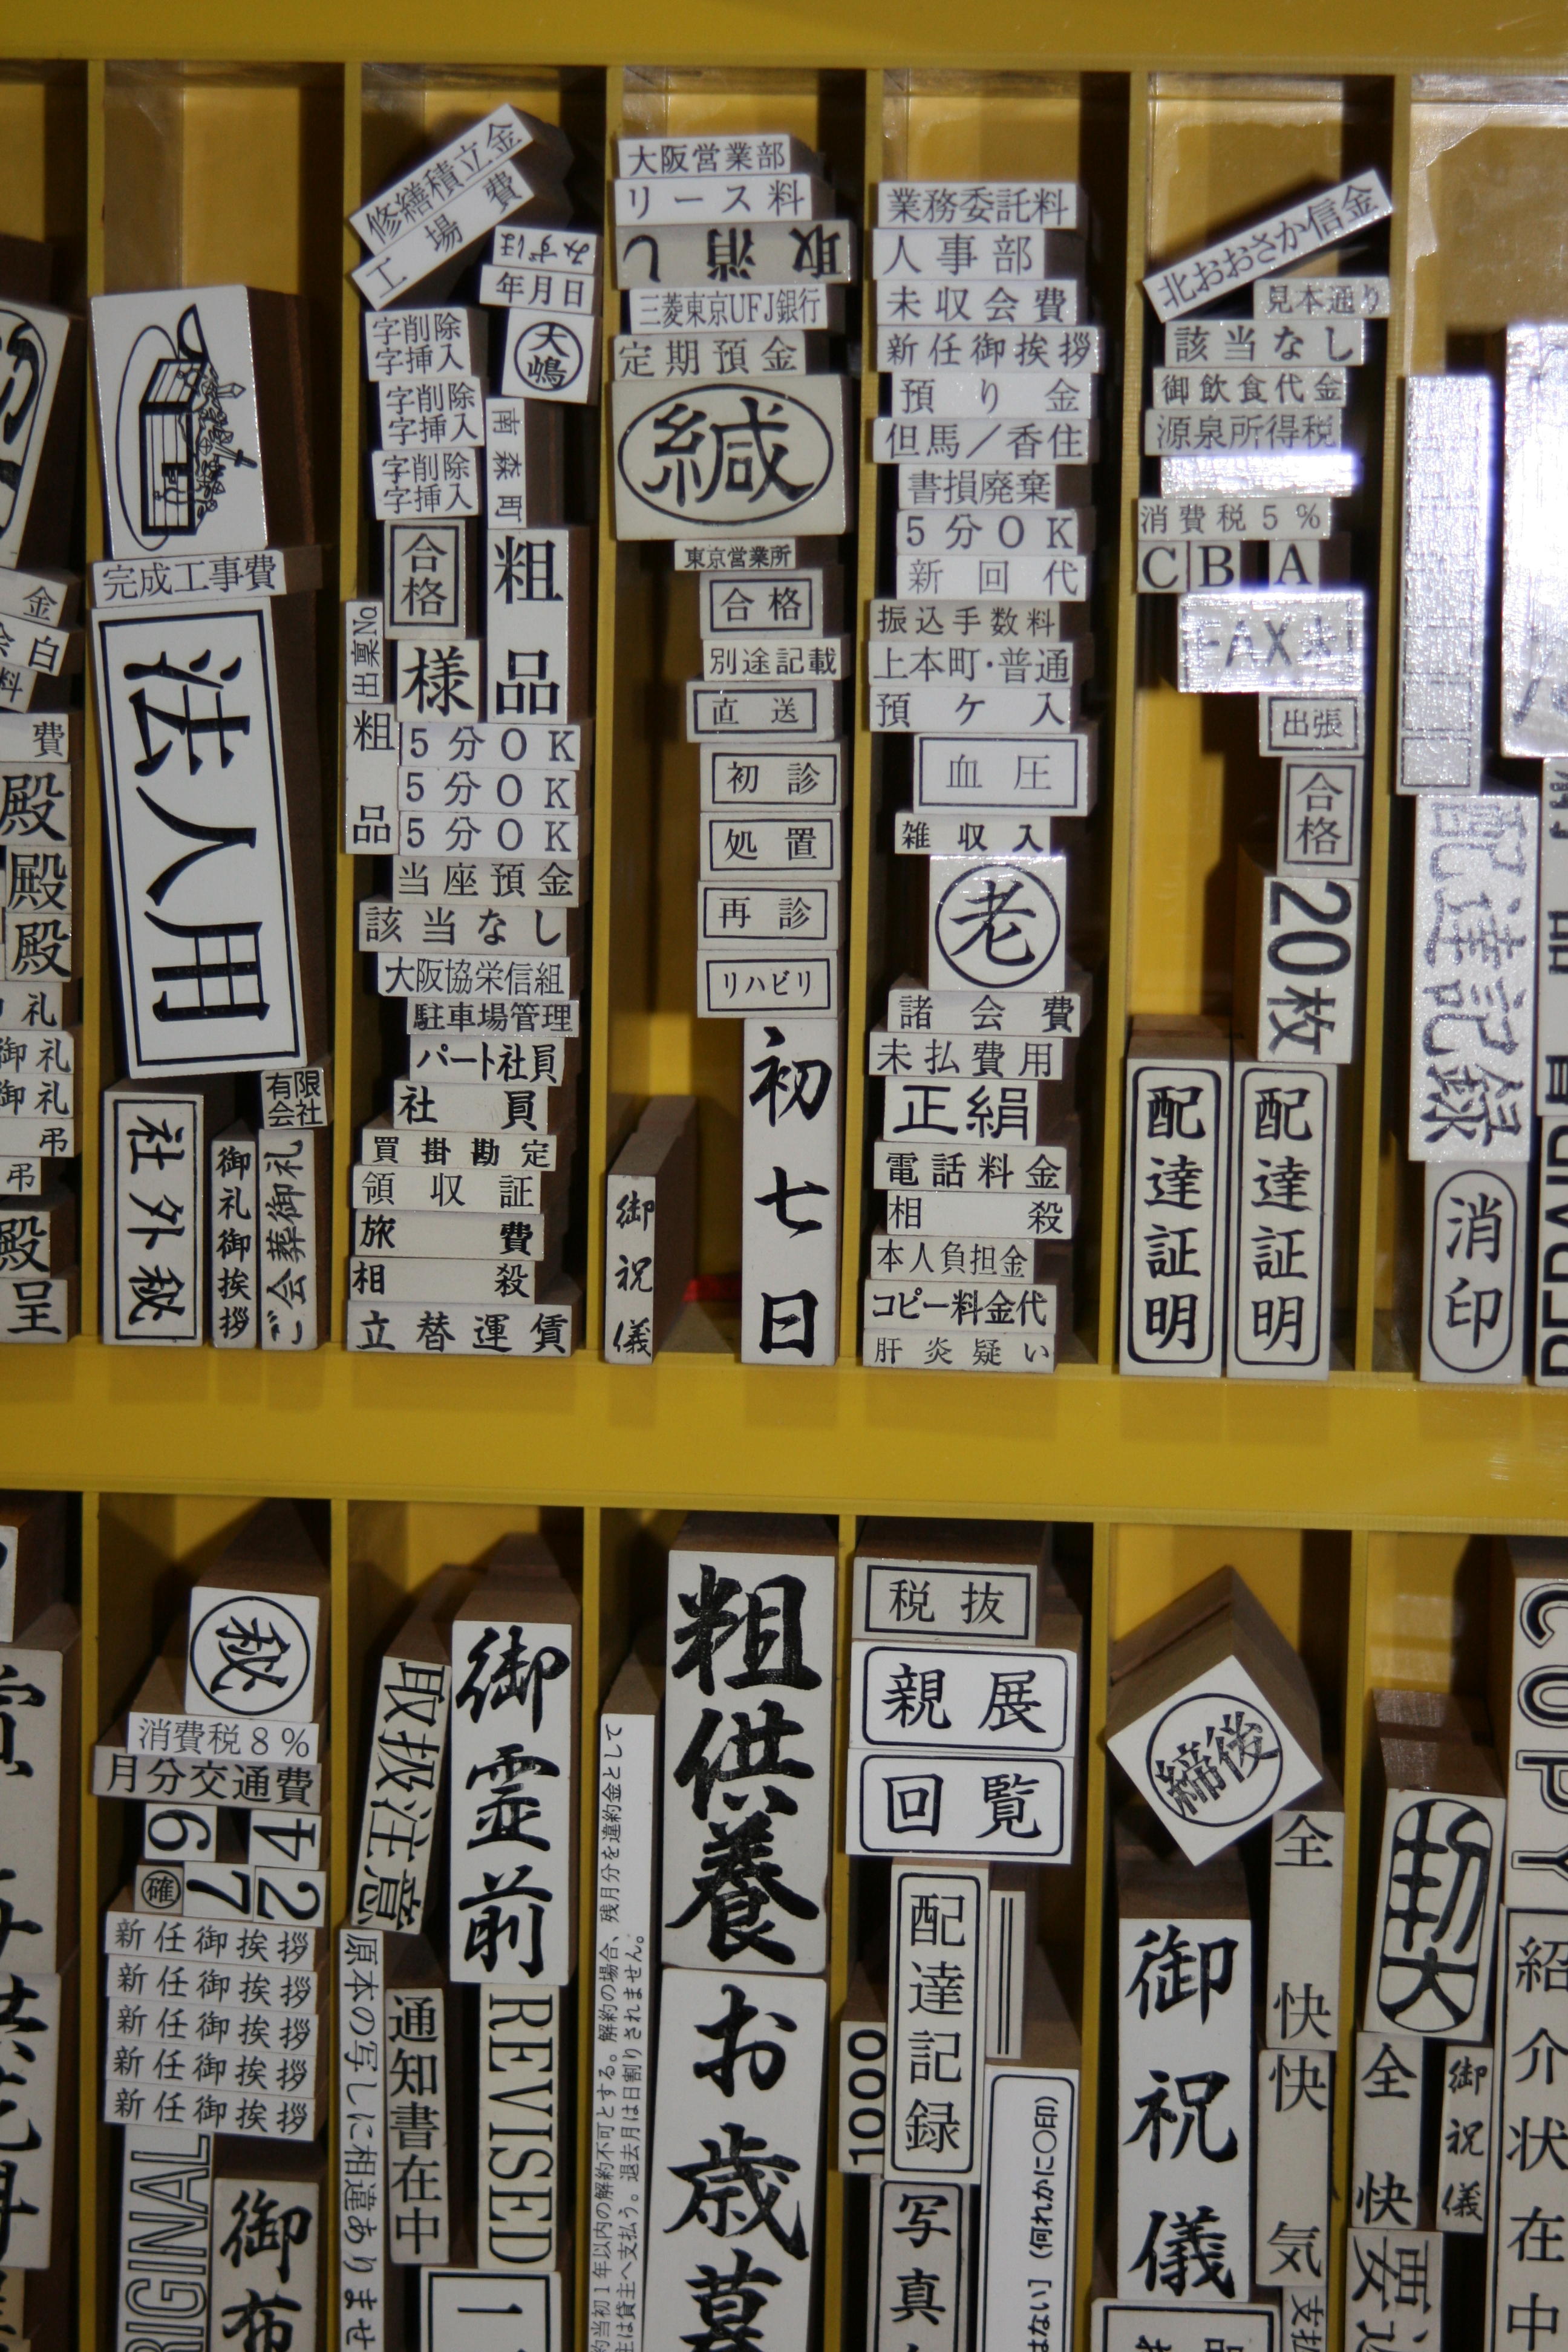 金
費
殿
殿
殿
礼
御礼
御礼
弔
弔
殿
呈
完成工事費
法人用
有限
会社
社外秘
御礼御挨拶
ご会葬御礼
修繕積立金
工場費
みずほ
年月日
字削除
字挿入
大嶋
字削除
字挿入
南森町
字削除
字挿入
合格
粗品
出稟No
様
粗品
5分OK
5分OK
5分OK
当座預金
該当なし
大阪協栄信組
駐車場管理
パート社員
社員
買掛勘定
領収証
旅費
相殺
立替運賃
大阪営業部
リース料
取消し
三菱東京UFJ銀行
定期預金
緘
東京営業所
合格
別途記載
直送
初診
処置
再診
リハビリ
初七日
御祝儀
業務委託料
人事部
未収会費
新任御挨拶
預り金
但馬/香住
書損廃棄
5分OK
新回代
振込手数料
上本町・普通
預ケ入
血圧
雑収入
老
諸会費
未払費用
正絹
電話料金
相殺
本人負担金
コピー料金代
肝炎疑い
北おおさか信金
見本通り
該当なし
御飲食代金
源泉所得税
消費税5%
C B A
出張
合格
20枚
配達証明
配達証明
配達記録
消印
秘
消費税8%
月分交通費
6 4
確 7 2
新任御挨拶
新任御挨拶
新任御挨拶
新任御挨拶
新任御挨拶
御布
取扱注意
御霊前
原本の写しに相違ありませ
通知書在中
REVISED
約当初1年以内の解約不可とする。解約の場合、残月分を違約金として
主は貸主へ支払う。退去月は日割りされません。
粗供養
お歳暮
税抜
親展
回覧
配達記録
1000
はない] (何れかに○印)
写真
締後
全快
御祝儀
快気
全快
御祝儀
COPY
紹介状在中